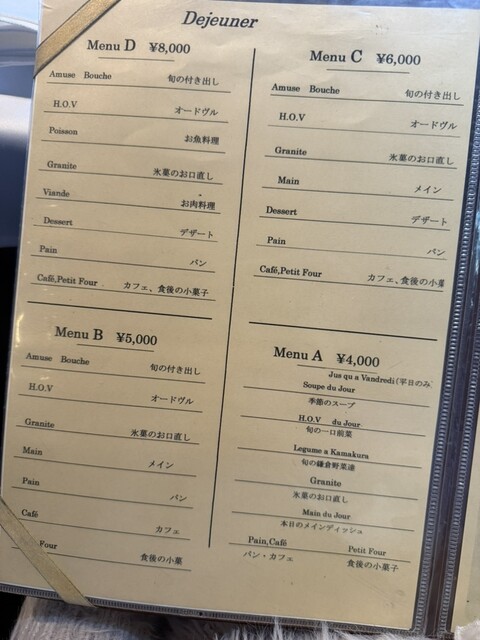 Dejeuner
Menu D ¥8,000
Amuse Bouche 旬の付き出し
H.O.V オードヴル
Poisson お魚料理
Granite 氷菓のお口直し
Viande お肉料理
Dessert デザート
Pain パン
Café,Petit Four カフェ、食後の小菓子
Menu C ¥6,000
Amuse Bouche 旬の付き出し
H.O.V オードヴル
Granite 氷菓のお口直し
Main メイン
Dessert デザート
Pain パン
Café,Petit Four カフェ、食後の小菓
Menu B ¥5,000
Amuse Bouche 旬の付き出し
H.O.V オードヴル
Granite 氷菓のお口直し
Main メイン
Pain パン
Café カフェ
Four 食後の小菓
Menu A ¥4,000
Jus qu a Vandredi(平日のみ
Soupe du Jour
季節のスープ
H.O.V du Jour
旬の一口前菜
Legume a Kamakura
旬の鎌倉野菜達
Granite
氷菓のお口直し
Main du Jour
本日のメインディッシュ
Pain,Café Petit Four
パン・カフェ 食後の小菓子